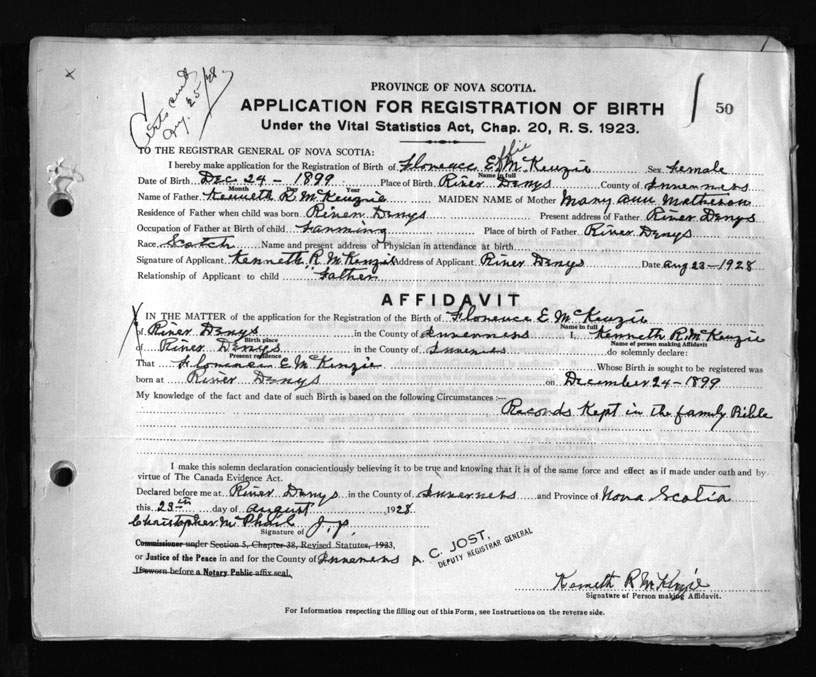 Aug. 25/28
PROVINCE OF NOVA SCOTIA.
APPLICATION FOR REGISTRATION OF BIRTH
50
Under the Vital Statistics Act, Chap. 20, R. S. 1923.
TO THE REGISTRAR GENERAL OF NOVA SCOTIA:
I hereby make application for the Registration of Birth of Florence Effie McKenzie Sex Female
Name in full
Date of Birth Dec 24 - 1899 Place of Birth River Denys County of Inverness
Month Day Year
Name of Father Kenneth R. McKenzie MAIDEN NAME of Mother Mary Ann Matheson
Residence of Father when child was born River Denys Present address of Father River Denys
Occupation of Father at Birth of child Farming Place of birth of Father River Denys
Race Scotch Name and present address of Physician in attendance at birth
Signature of Applicant Kenneth R McKenzie Address of Applicant River Denys Date Aug 23-1928
Relationship of Applicant to child Father
AFFIDAVIT
IN THE MATTER of the application for the Registration of the Birth of Florence E McKenzie
Name in full
of River Denys in the County of Inverness I, Kenneth R. McKenzie
Birth place Name of person making Affidavit
of River Denys in the County of Inverness do solemnly declare:
Present residence
That Florence E McKenzie Whose Birth is sought to be registered was
born at River Denys on December 24-1899
My knowledge of the fact and date of such Birth is based on the following Circumstances :—
Records Kept in the family Bible
I make this solemn declaration conscientiously believing it to be true and knowing that it is of the same force and effect as if made under oath and by
virtue of The Canada Evidence Act.
Declared before me at River Denys in the County of Inverness and Province of Nova Scotia
this 23th day of August 1928.
Christopher McPhail J.P.
Signature of
Commissioner under Section 5, Chapter 38, Revised Statutes, 1923,
or Justice of the Peace in and for the County of Inverness
If sworn before a Notary Public affix seal.
A. C. JOST,
DEPUTY REGISTRAR GENERAL
Kenneth R McKenzie
Signature of Person making Affidavit.
For Information respecting the filling out of this Form, see Instructions on the reverse side.